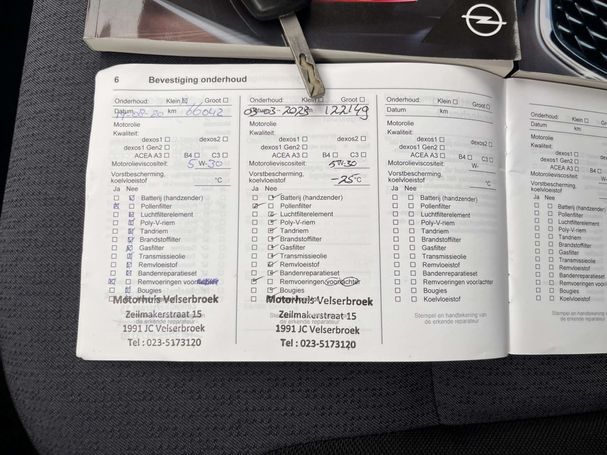 6 Bevestiging onderhoud
Onderhoud: Klein Groot
Datum km 66042
Motorolie
Kwaliteit:
dexos1 dexos2
dexos1 Gen2
ACEA A3 B4 C3
Motorolieviscositeit: 5 W-30
Vorstbescherming,
koelvloeistof °C
Ja Nee
Batterij (handzender)
Pollenfilter
Luchtfilterelement
Poly-V-riem
Tandriem
Brandstoffilter
Gasfilter
Transmissieolie
Remvloeistof
Bandenreparatieset
Remvoeringen
Bougies
Motorhuis Velserbroek
Zeilmakerstraat 15
1991 JC Velserbroek
Tel : 023-5173120
Onderhoud: Klein Groot
03-03-2023 122149
Motorolie
Kwaliteit:
dexos1 dexos2
dexos1 Gen2
ACEA A3 B4 C3
Motorolieviscositeit: 5W-30
Vorstbescherming,
koelvloeistof -25°C
Ja Nee
Batterij (handzender)
Pollenfilter
Luchtfilterelement
Poly-V-riem
Tandriem
Brandstoffilter
Gasfilter
Transmissieolie
Remvloeistof
Bandenreparatieset
Remvoeringen voor/achter
Bougies
Motorhuis Velserbroek
Zeilmakerstraat 15
1991 JC Velserbroek
Tel : 023-5173120
Onderhoud: Klein Groot
Datum km
Motorolie
Kwaliteit:
dexos1 dexos2
dexos1 Gen2
ACEA A3 B4 C3
Motorolieviscositeit: W-
Vorstbescherming,
koelvloeistof °C
Ja Nee
Batterij (handzender)
Pollenfilter
Luchtfilterelement
Poly-V-riem
Tandriem
Brandstoffilter
Gasfilter
Transmissieolie
Remvloeistof
Bandenreparatieset
Remvoeringen voor/achter
Bougies
Koelvloeistof
Stempel en handtekening van
de erkende reparateur
Onderhoud:
Datum
Motorolie
Kwaliteit:
dexos1
dexos1 Gen2
ACEA A3 B4
Motorolieviscositeit:
Vorstbescherming,
koelvloeistof
Ja Nee
Batterij (handzender)
Pollenfilter
Luchtfilterelement
Poly-V-riem
Tandriem
Brandstoffilter
Gasfilter
Transmissieolie
Remvloeistof
Bandenreparatieset
Remvoeringen voor/achter
Bougies
Koelvloeistof
Stempel en handtekening van
de erkende reparateur